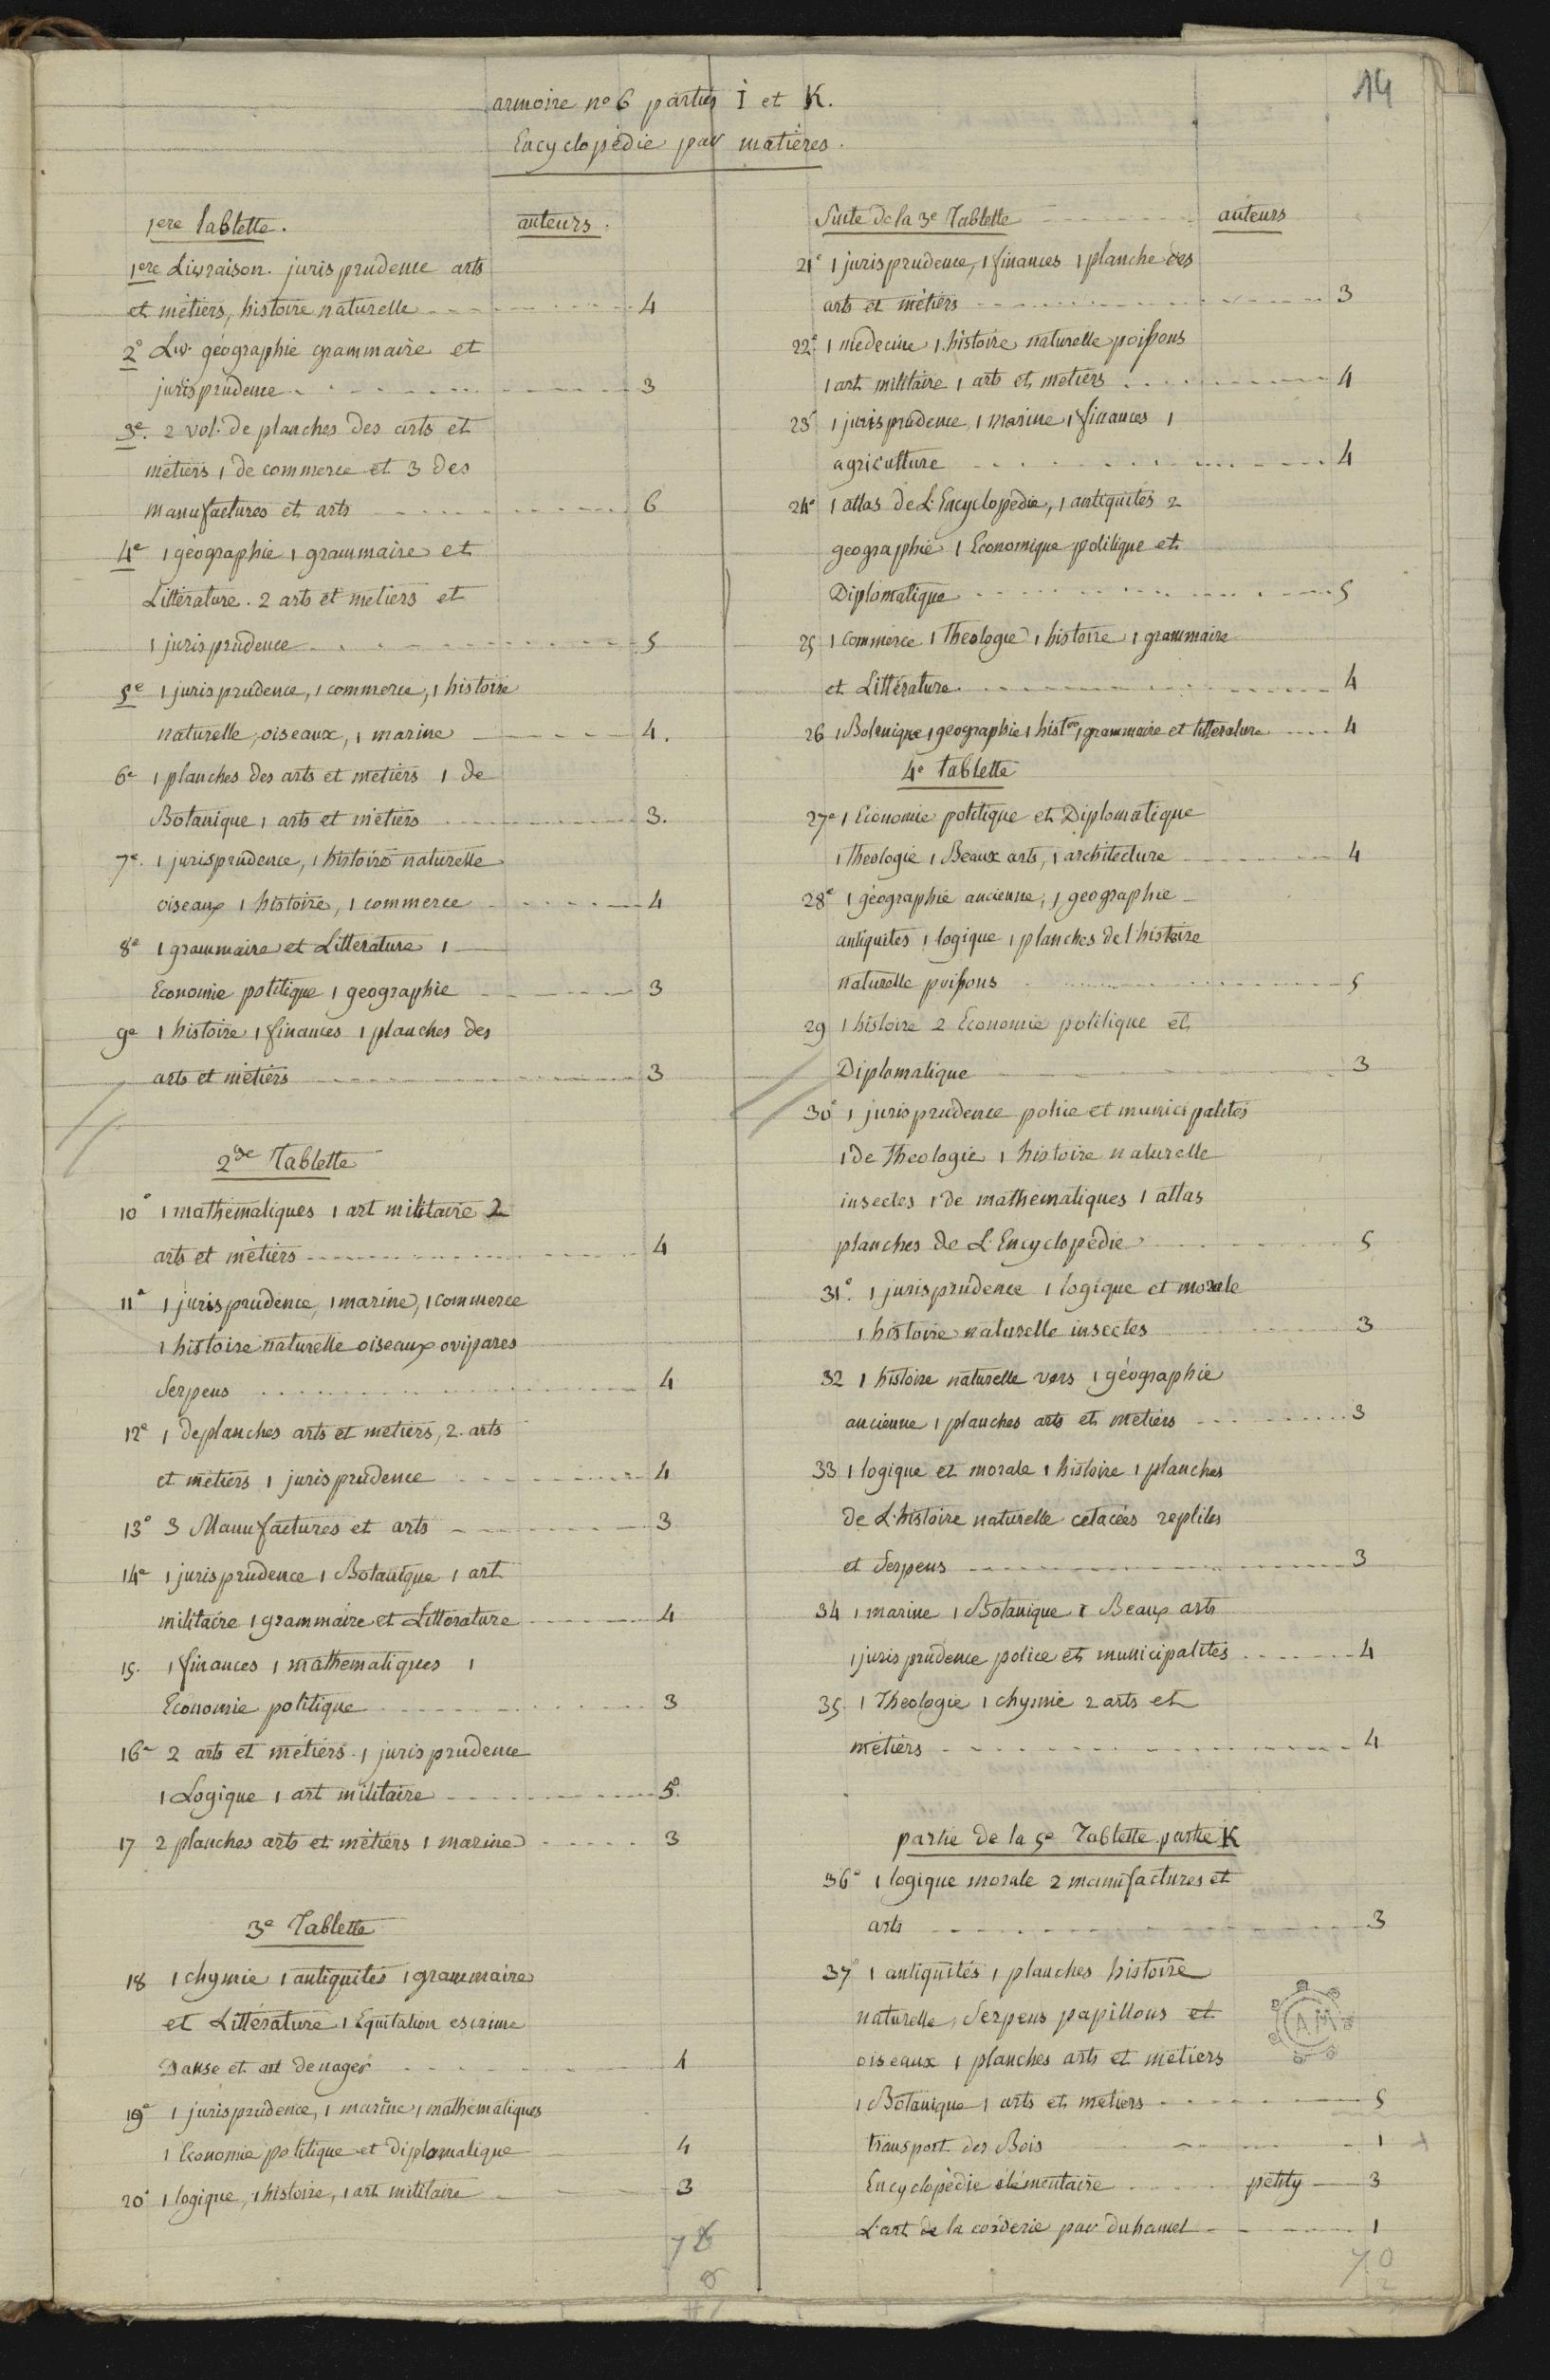 14
armoire no 6 parties I et K.
Encyclopédie par matières.
1ere tablette. auteurs.
1ere Livraison. jurisprudence arts
et métiers, histoire naturelle 4
2e Liv. géographie grammaire et
jurisprudence 3
3e. 2 vol. de planches des arts et
metiers 1 de commerce et 3 des
manufactures et arts 6
4e 1 géographie 1 grammaire et
Littérature. 2 arts et metiers et
1 jurisprudence 5
5e 1 jurisprudence, 1 commerce, 1 histoire
naturelle, oiseaux, 1 marine 4.
6e 1 planches des arts et metiers 1 de
Botanique 1 arts et métiers 3.
7e. 1 jurisprudence, 1 histoire naturelle
oiseaux 1 histoire, 1 commerce 4
8e 1 grammaire et Litterature 1
Economie politique 1 geographie 3
9e 1 histoire 1 finances 1 planches des
arts et métiers 3
2de Tablette
10e 1 mathematiques 1 art militaire 2
arts et métiers 4
11e 1 jurisprudence, 1 marine, 1 commerce
1 histoire naturelle oiseaux ovipares
Serpens 4
12e 1 de planches arts et metiers, 2. arts
et metiers 1 jurisprudence 4
13e 3 Manufactures et arts 3
14e 1 jurisprudence 1 Botanique 1 art
militaire 1 grammaire et Litterature 4
15. 1 finances 1 mathematiques 1
Economie politique 3
16e 2 arts et métiers. 1 jurisprudence
1 Logique 1 art militaire 5.
17 2 planches arts et métiers 1 marine 3
3e Tablette
18 1 chymie 1 antiquités 1 grammaire
et Littérature 1 Equitation escrime
Danse et art de nager 4
19e 1 jurisprudence, 1 marine 1 mathematiques
1 Economie politique et diplomatique 4
20e 1 logique, 1 histoire, 1 art militaire 3
Suite de la 3e Tablette auteurs
21e 1 jurisprudence, 1 finances 1 planche des
arts et métiers 3
22e. 1 medecine 1 histoire naturelle poissons
1 art militaire 1 arts et metiers 4
23e 1 jurisprudence, 1 marine 1 finances 1
agriculture 4
24e 1 atlas de L'Encyclopédie, 1 antiquités 2
geographie 1 Economique politique et
Diplomatique 5
25 1 commerce 1 Theologie 1 histoire 1 grammaire
et Littérature 4
26 1 Botanique 1 geographie 1 histre 1 grammaire et litterature 4
4e tablette
27e 1 Economie politique et Diplomatique
1 theologie 1 Beaux arts, 1 architecture 4
28e 1 géographie ancienne, 1 geographie
antiquites 1 logique 1 planches de l'histoire
naturelle poissons 5
29 1 histoire 2 Economie politique et
Diplomatique 3
30e 1 jurisprudence police et municipalités
1 de Theologie 1 histoire naturelle
insectes 1 de mathematiques 1 atlas
planches de L'Encyclopedie 5
31e. 1 jurisprudence 1 logique et morale
1 histoire naturelle insectes 3
32 1 histoire naturelle vers 1 géographie
ancienne 1 planches arts et metiers 3
33 1 logique et morale 1 histoire 1 planches
de L'histoire naturelle cetacées reptiles
et Serpens 3
34 1 marine 1 Botanique 1 Beaux arts
1 jurisprudence police et municipalités 4
35. 1 Theologie 1 chymie 2 arts et
métiers 4
partie de la 5e Tablette partie K
36e 1 logique morale 2 manufactures et
arts 3
37e 1 antiquités 1 planches histoire
naturelle, Serpens papillons et
oiseaux 1 planches arts et metiers
1 Botanique 1 arts et metiers 5
transport des Bois 1
Encyclopédie élémentaire petity 3
L'art de la corderie par duhamel 1
70
AM